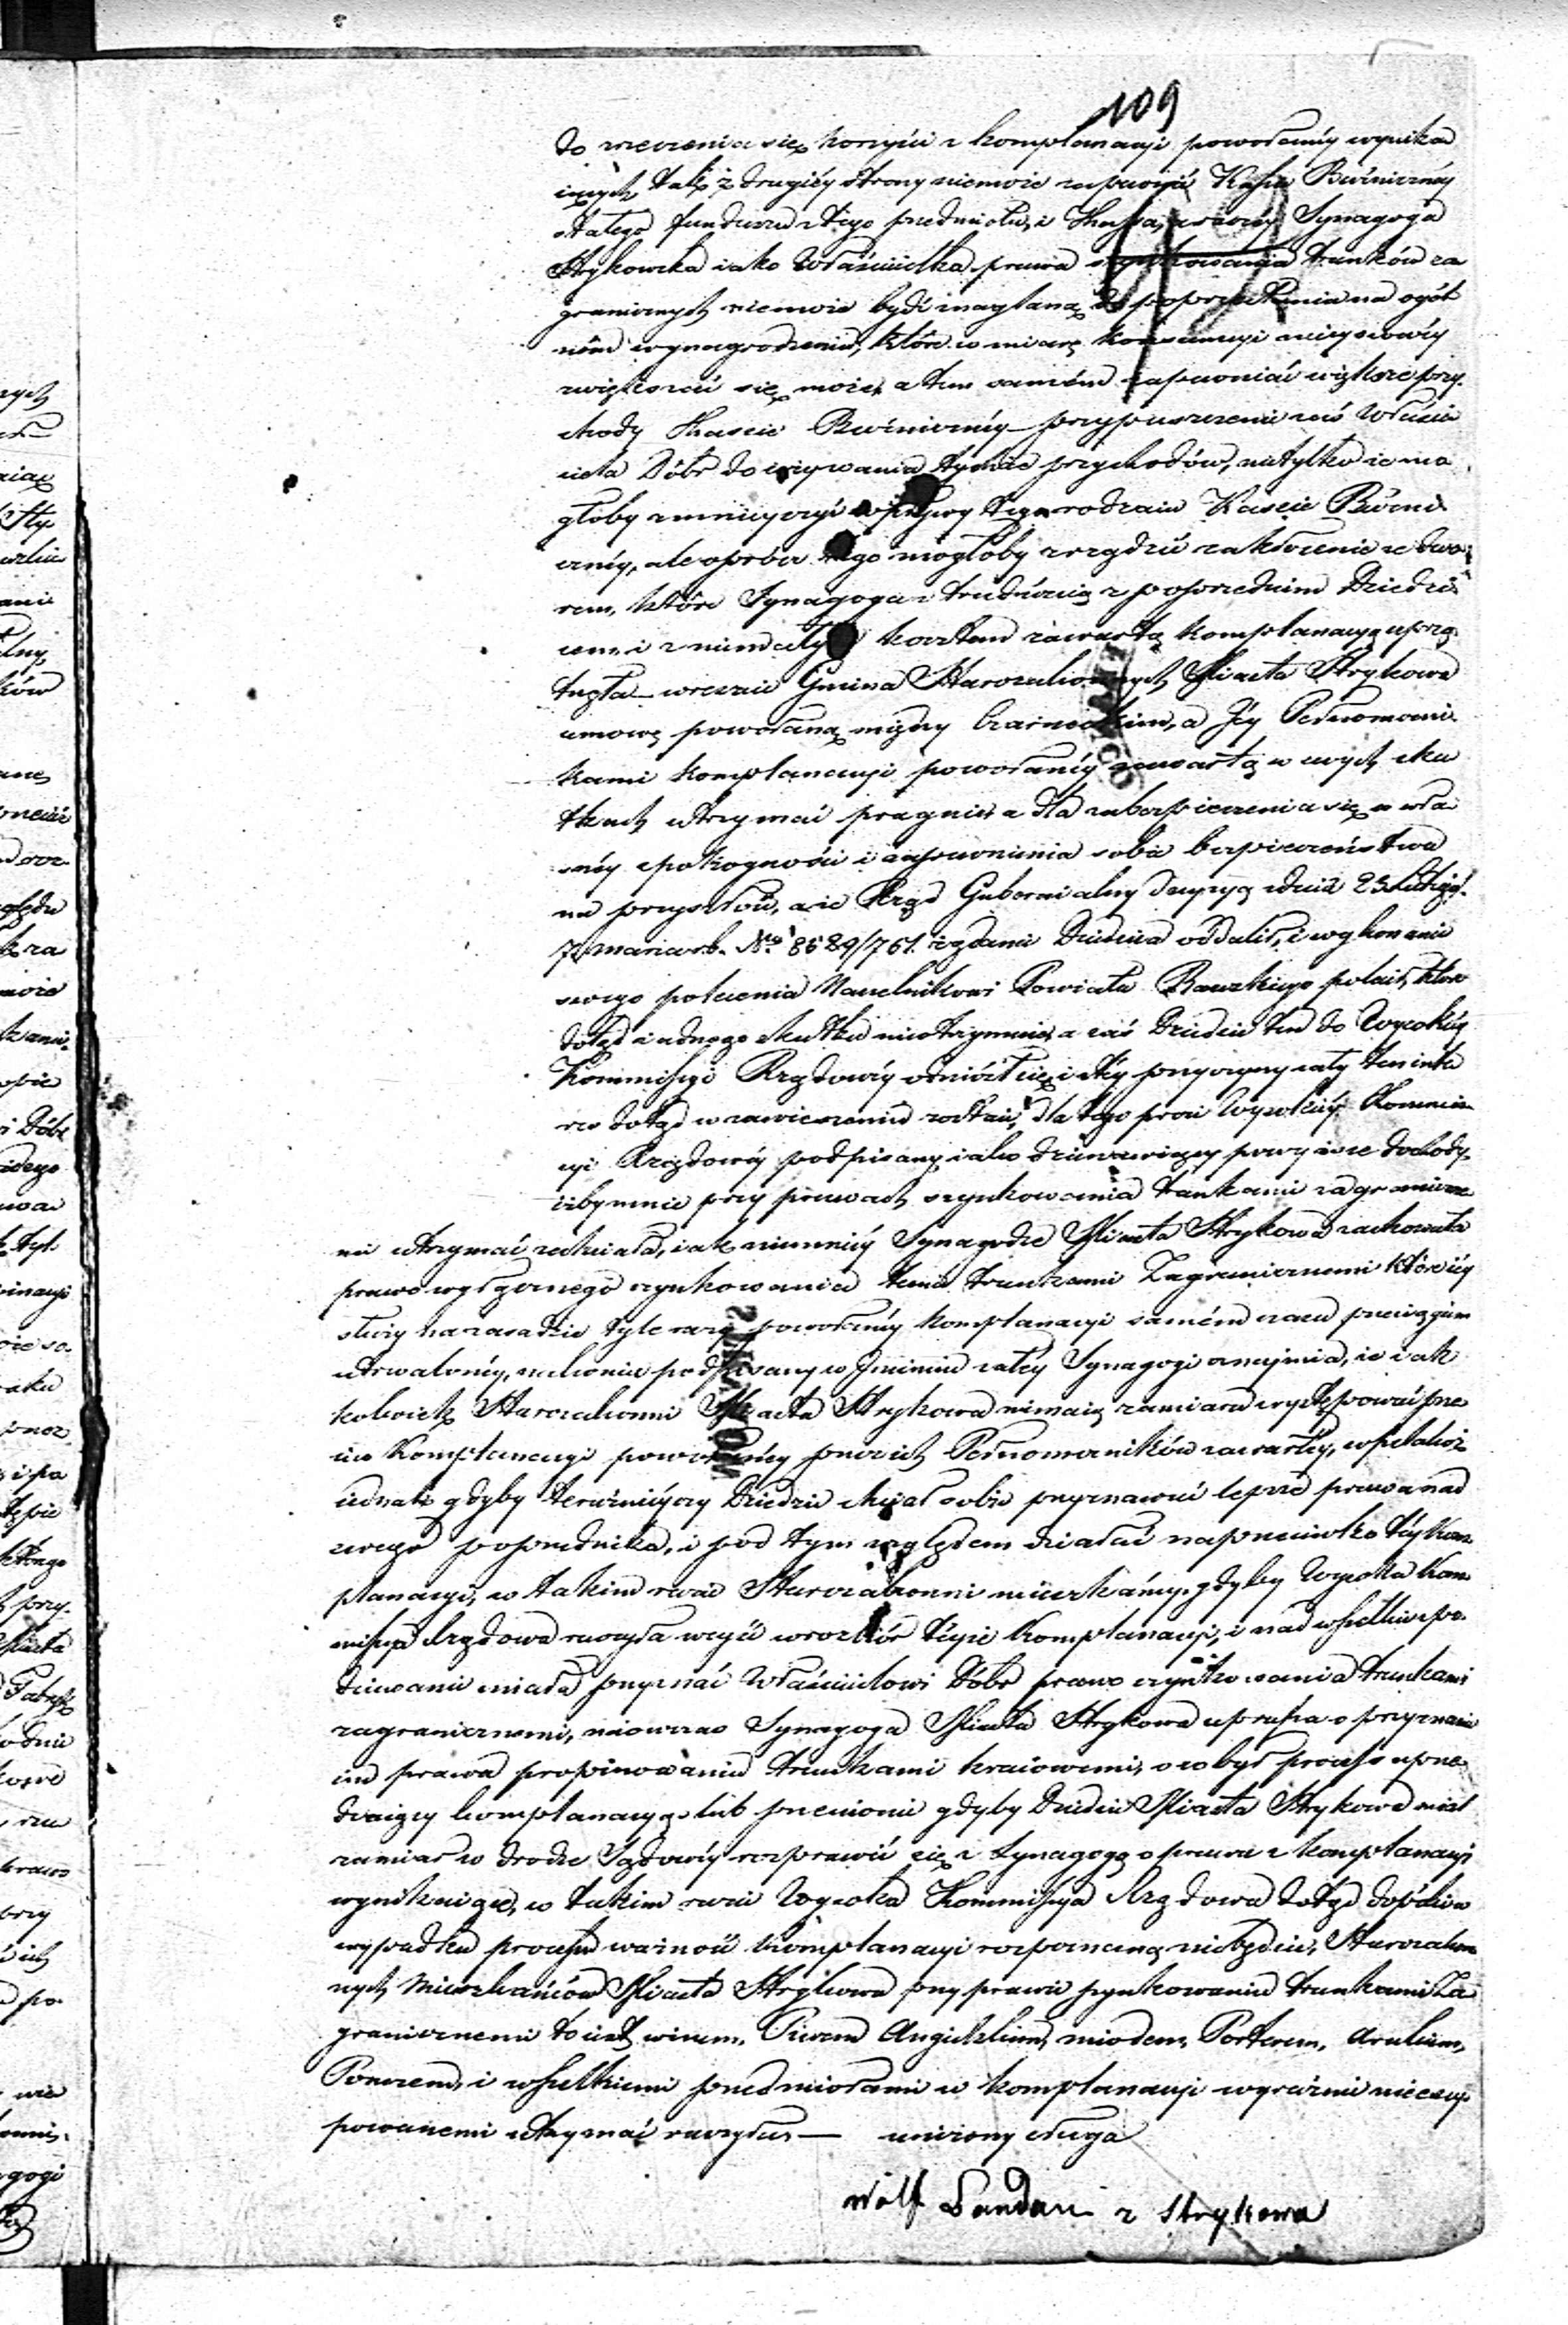 109
do zrzeczenia się korzyści z komplanacyi powołanéy wynika
iących, tak z drugiéy strony niemoże zapewnić Kassie Bóżnicznéy
stałego funduszu z tego przedmiotu, i Synagoga
Strykowska iako Właścicielka prawa szynkowania trunków za
granicznych niemoże bydź naglaną do poprzestania na ogól
nem wynagrodzeniu, które w miarę konsumcyi mieyscowéy
zwiększać się może, a tem samem zapewniać większe przy
chody Kassie Bóżnicznéy – przypuszczenie zaś Właści
ciela Dóbr do używania tychże przychodów, nietylko że mo
głoby zmnieyszyć wpływy tego rodzaiu Kassie Bóżni
cznéy, ale oprócz tego mogłoby zrządzić zakłócenie ze Dwo
rem, które Synagoga z trudnością z poprzednim Dziedzi
cem i z niemałym kosztem zawartą komplanacyą uprzą
tnęła – wreszcie Gmina Starozakonnych Miasta Strykowa
umowę powołaną między Czarneckim, a Jéy Pełnomocni
kami komplanacyi powołanéy zawartą w swych sku
tkach utrzymać pragnie, a dla zabezpieczenia się w wła
snéy spokoyności i zapewnienia sobie bezpieczeństwa
na przyszłość, a że Rząd Gubernialny decyzyą z dnia 23 Lutego
7 Marca r.b. No 8689/761. żądanie Dziedzica oddalił, i wykonanie
swego polecenia Naczelnikowi Powiatu Rawskiego polecił, które
dotąd żadnego skutku nieotrzymało, a zaś Dziedzic ten do Wysokiéy
Kommissyi Rządowéy odniósł się, i z téy przyczyny cały ten inte
res dotąd w zawieszeniu zostaie, dla tego prosi Wysokiéy Kommis
syi Rządowéy podpisany, iako dzierżawiący powyższe dochody,
iżby mnie przy prawach szynkowania trunkami zagraniczne
mi utrzymać zechciała, iak niemniéy Synagodze Miasta Strykowa zachowała
prawo wyłącznego szynkowania temi trunkami Zagranicznemi które iéy
służy na zasadzie tyle razy powołanéy komplanacyi samém czasu przeciągiem
utrwalonéy, nakoniec podpisany w Imieniu całéy Synagogi oznaymia, że iak
kolwiek Starozakonni Miasta Strykowa niemaią zamiaru występować prze
ciw Komplanacyi powołanéy przez ich Pełnomocników zawartéy, wszelakoż
iednak gdyby terazniéyszy Dziedzic chciał sobie przyznawać lepsze prawa nad
swego poprzednika, i pod tym względem działać naprzeciwko téy Kom
planacyi, w takim razie Starozakonni mieszkańcy, gdyby Wysoka Kom
missya Rządowa raczyła wziąć w rozbiór téyże Komplanacyi, i nad wszelkie spo
dziewanie miała przyznać Właścicielowi Dóbr prawo szynkowania trunkami
zagranicznemi, nówczas Synagoga Miasta Strykowa uprasza o przyznanie
im prawa propinowania trunkami kraiowemi, o co był process uprze
dzaiący komplanacyą – lub przeciwnie gdyby Dziedzic Miasta Strykowa miał
zamiar w drodze Sądowéy rozprawić się z Synagogą o prawa z komplanacyi
wynikaiące, w takim razie Wysoka Kommissya Rządowa dotąd dopóki w
wypadku processu ważność komplanacyi rozpoznaną niebędzie, Starozakon
nych Mieszkańców Miasta Strykowa przy prawie szynkowania trunkami Za
granicznemi to iest winem, Piwem Angielskim, miodem, Porterem, Arakiem,
Ponczem, i wszelkiemi przedmiotami w komplanacyi wyraźnie niecexcy
powanemi utrzymać raczyła. — uniżony sługa
Wolf Landau z Strykowa